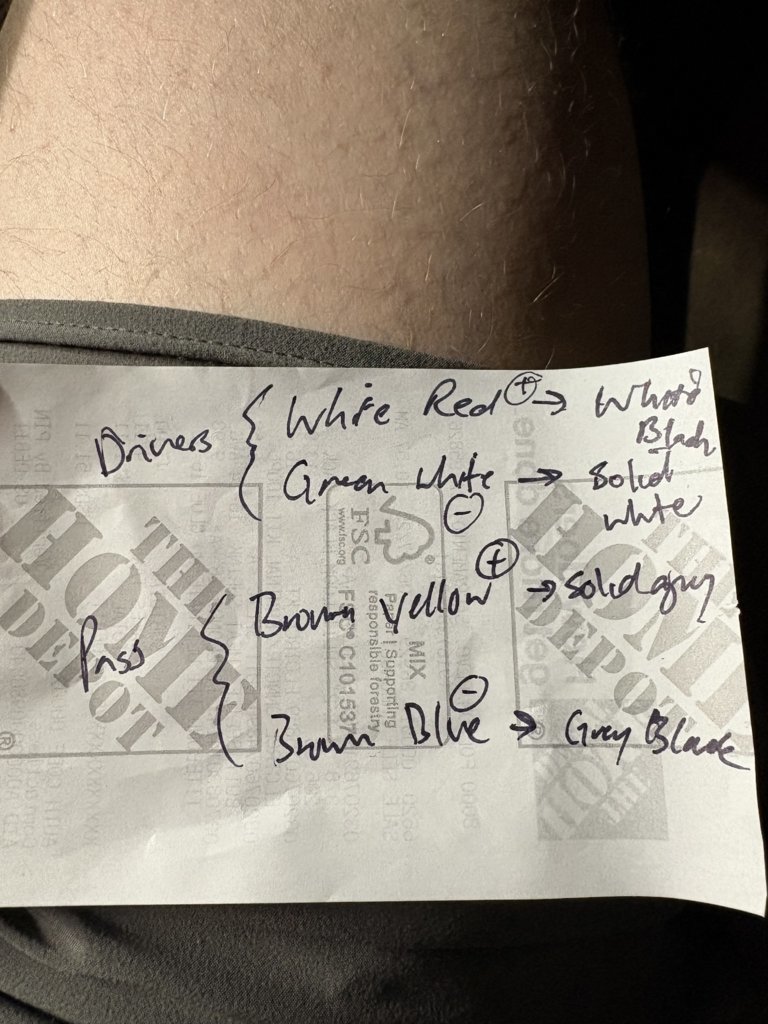 Drivers { White Red ⊕ → White Black
Green White ⊖ → Solid white
Pass { Brown Yellow ⊕ → Solid gray
Brown Blue ⊖ → Grey Black
THE
HOME
DEPOT
®
FSC
www.fsc.org
MIX
Paper | Supporting
responsible forestry
FSC® C101537
THE
HOME
DEPOT